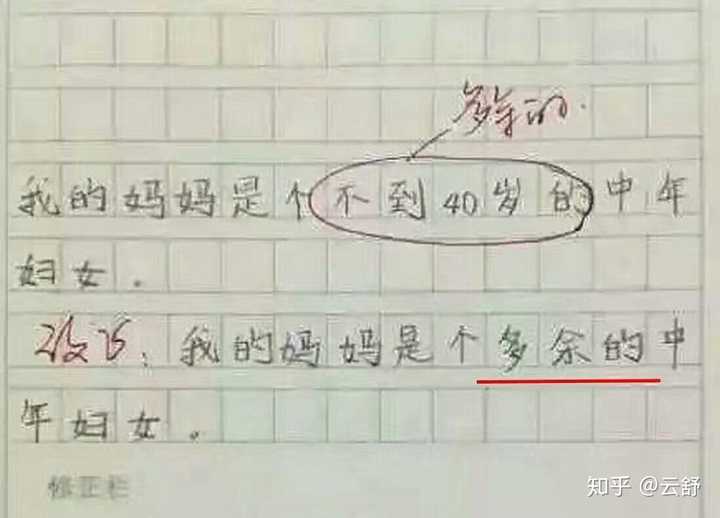 多余的.
我的妈妈是个不到40岁的中年
妇女.
改巧:我的妈妈是个多余的中
年妇女。
修正栏
知乎 @云舒